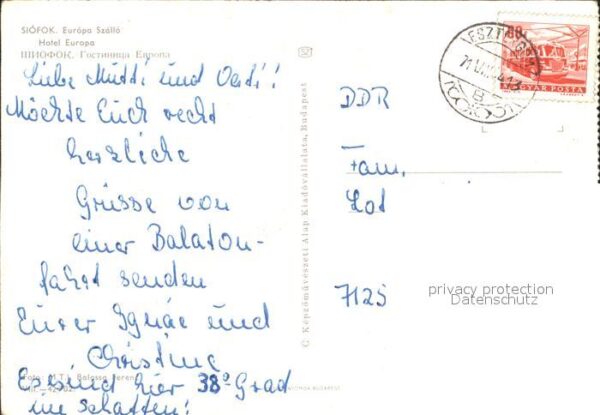 SIÓFOK. Európa Szálló
Hotel Europa
ШИОФОК. Гостиница Европа
Liebe Mutti und Vati!
Möchte Euch recht
herzliche
Grüsse von
einer Balaton-
fahrt senden
Eurer Ignác und
Christine
Es sind hier 38° Grad
im Schatten!
Foto: MTI Balassa Ferenc
© Képzőművészeti Alap Kiadóvállalata, Budapest
ESZTERGOM
71
MAGYAR POSTA
DDR
Fam.
Lot
7125
privacy protection
Datenschutz